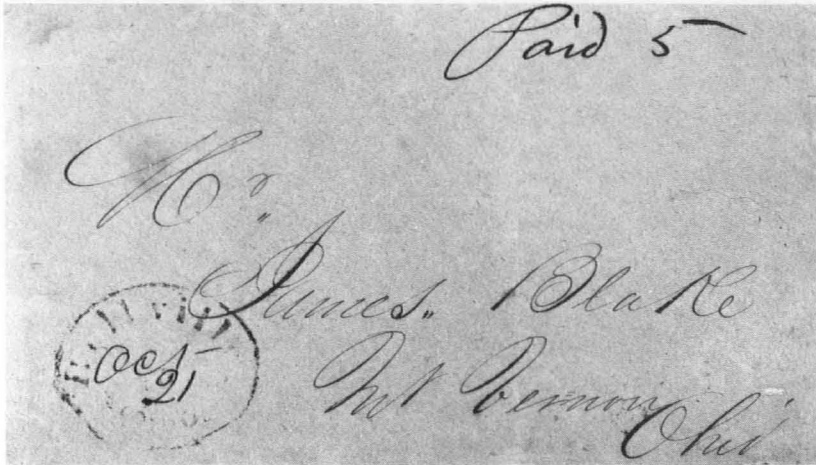 Paid 5
Mr.
James. Blake
Mt Vernon
Ohio
Oct
21